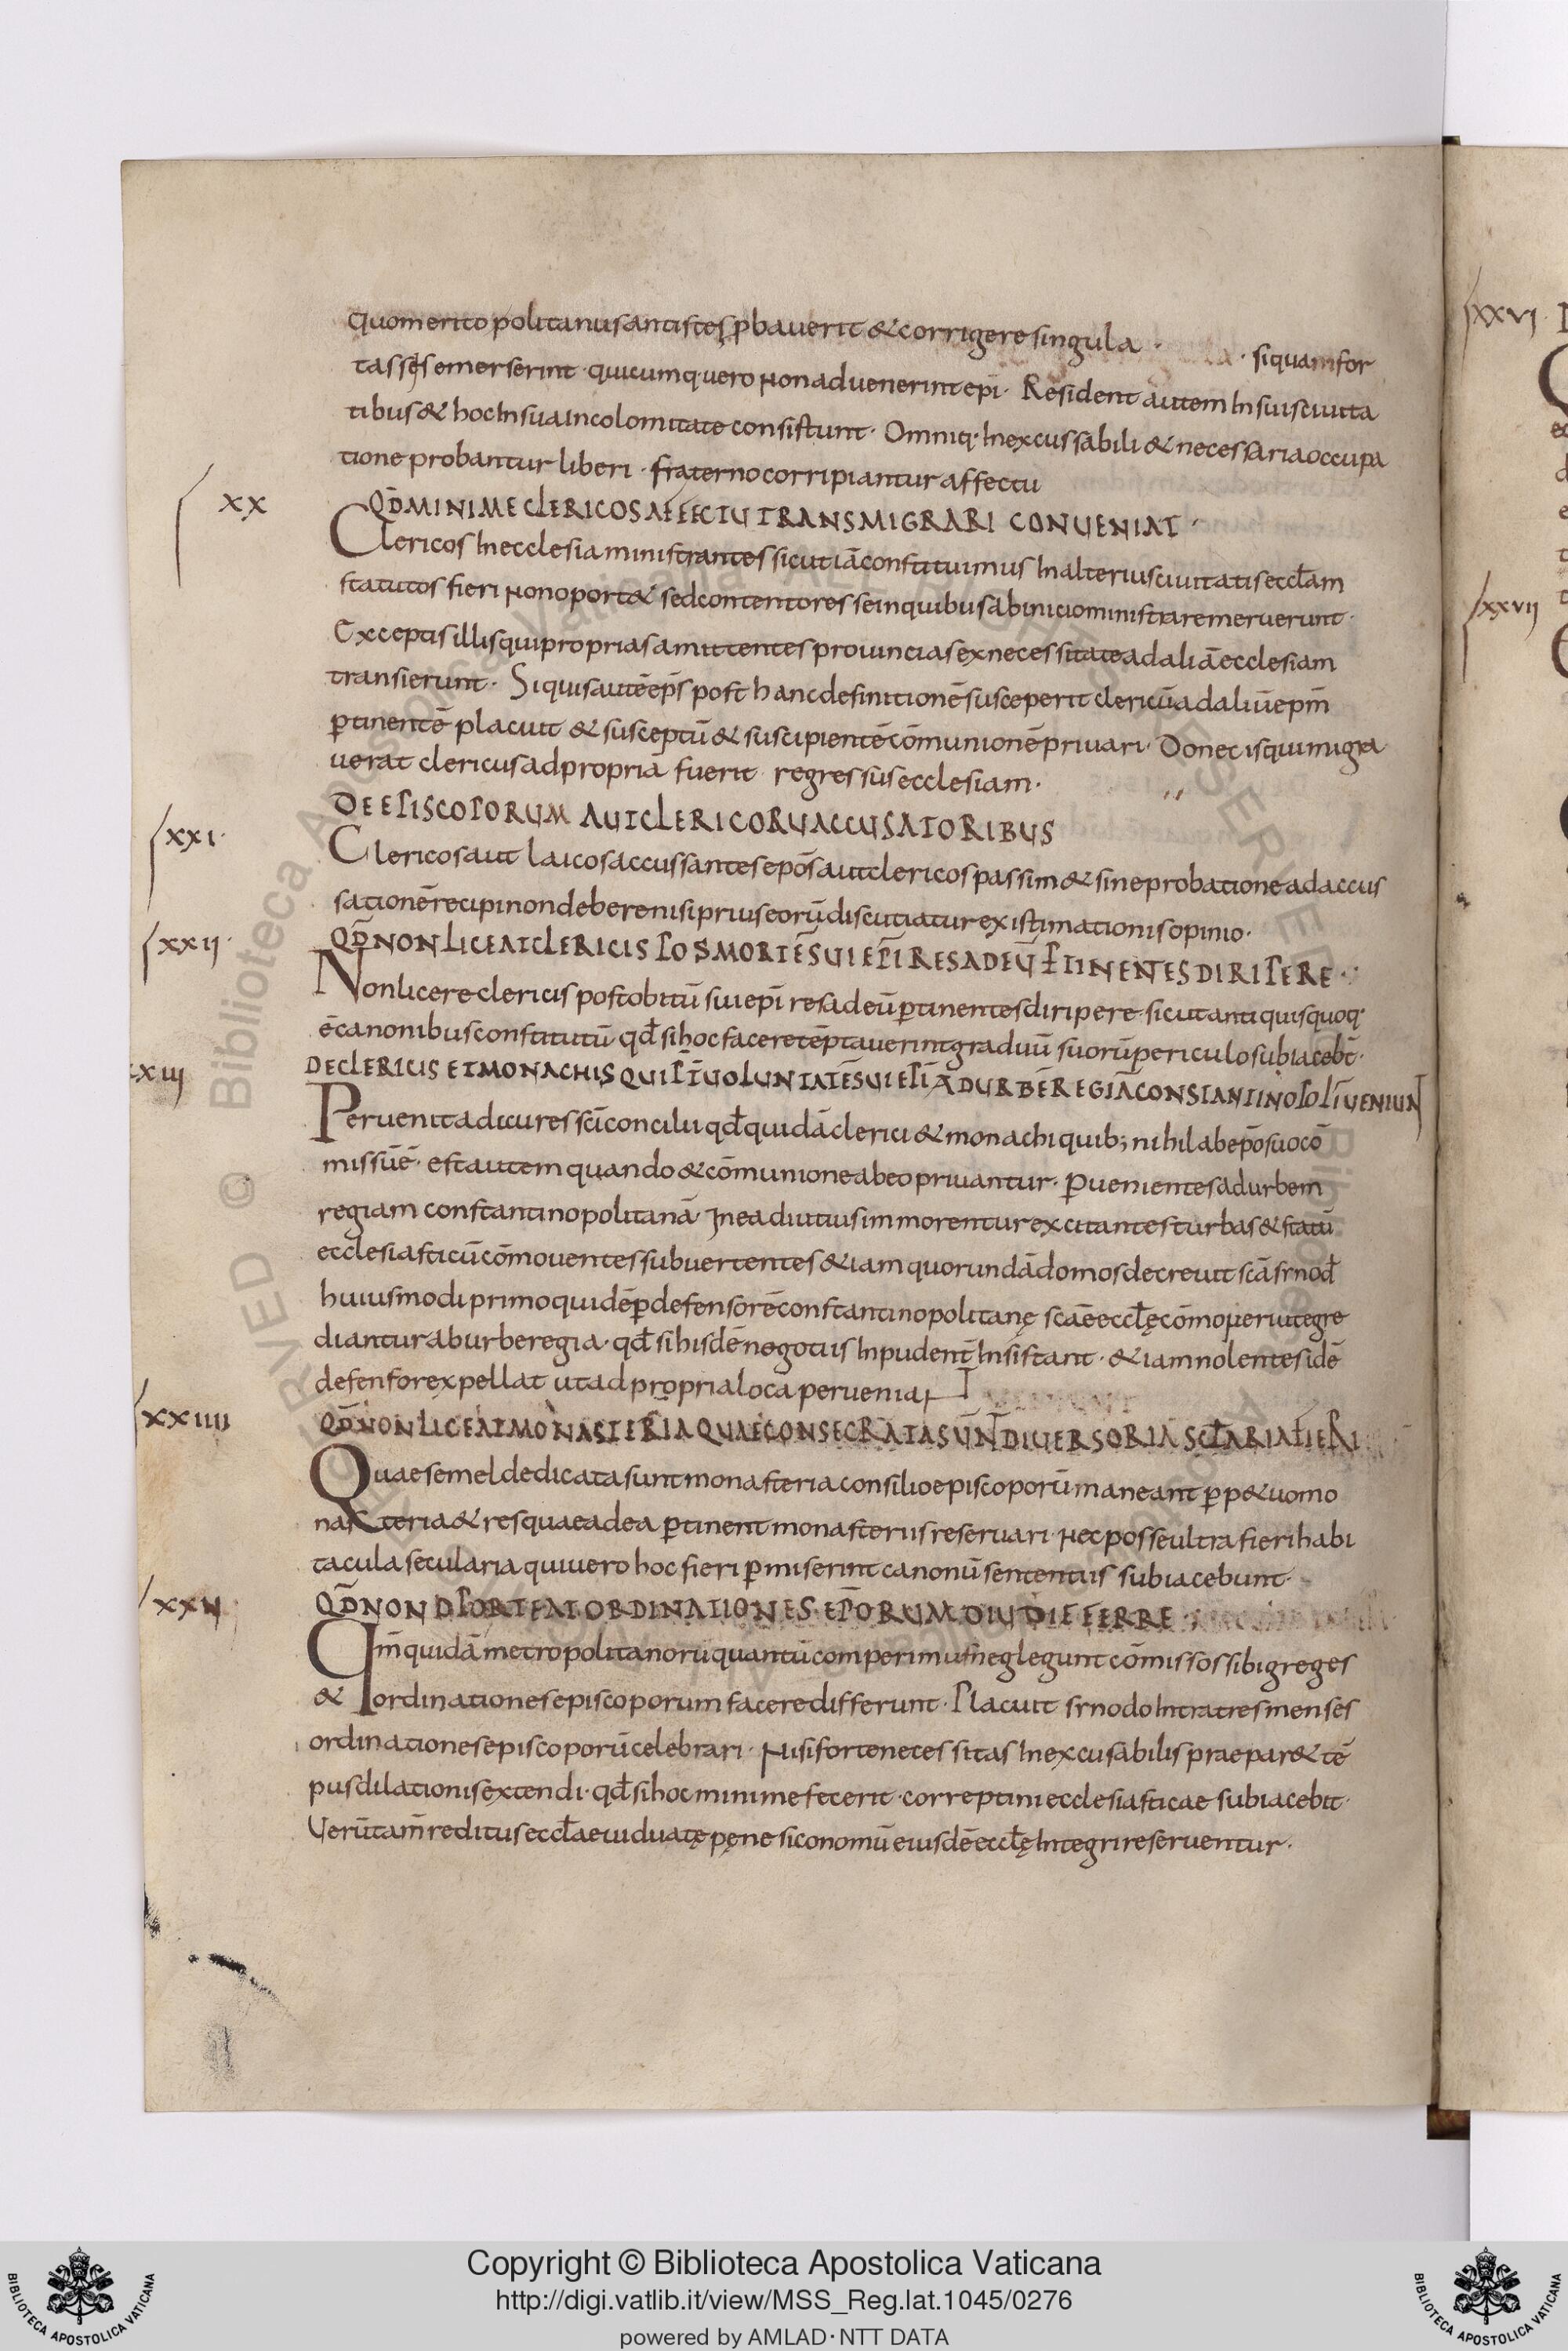 quo merito politanus antistes p̱bauerit & corrigere singula · siquam for
tasses emerserint · quicumq· uero non aduenerint epī · Resident autem In suis ciuita
tibus & hoc In sua Incolomitate consistunt · Omniq· Inexcussabili & necessaria occupa
tione probantur liberi · fraterno corripiantur affectu
XX
QD̄ MINIME CLERICOS AFFECTU TRANSMIGRARI CONUENIAT ·
Clericos In ecclesia ministrantes sicut iā constituimus In alterius ciuitatis eccłam
statutos fieri non oport& sed contentores se in quibus ab inicio ministrare meruerunt ·
Exceptis illis qui proprias amittentes prouincias ex necessitate ad aliā ecclesiam
transierunt · Si quis autē ep̄s post hanc definitionē susceperit clericū ad aliū epm̄
ꝑtinentē placuit & susceptū & suscipientē cōmunionē priuari · Donec is qui migra
uerat clericus ad propriā fuerit regressus ecclesiam ·
DE EPISCOPORUM AUT CLERICORU ACCUSATORIBUS
XXI ·
Clericos aut laicos accussantes epōs aut clericos passim & sine probatione ad accus
sationē recipi non debere nisi prius eorū discutiatur existimationis opinio ·
XXII ·
QD̄ NON LICEAT CLERICIS POS MORTĒ SUI EPĪ RES AD EŪ ꝐTINENTES DIRIPERE ·
Non licere clericis post obitū sui epī res ad eū ꝑtinentes diripere sicut antiquis quoq·
ē canonibus constitutū qđ si hoc facere tēptauerint graduū suorū periculo subiacebt̄ ·
XXIII
DE CLERICIS ET MONACHIS QUI P̄T̄ UOLUNTATĒ SUI EPĪ AD URBĒ REGIĀ CONSTANTINOPOLĪ UENIUNT
Peruenit ad aures scī concilii qđ quidā clerici & monachi quib; nihil ab epō suo cō
missū ē · est autem quando & cōmunione ab eo priuantur · ꝑuenientes ad urbem
regiam constantinopolitanā In ea diutius immorentur excitantes turbas & statū
ecclesiasticū cōmouentes subuertentes &iam quorundā domos decreuit scā synođ
huiusmodi primo quidē ꝑ defensorē constantinopolitanę scāe eccłę cōmoueri ut egre
diantur ab urbe regia · qđ si hisdē negotiis Inpudent̄ Insistant · &iam nolentes idē
defensor expellat ut ad propria loca perueniaNT
XXIIII
QD̄ NON LICEAT MONASTERIA QUAE CONSECRATA SUNT DIUERSORIA SCŁARIA FIERI
Quae semel dedicata sunt monasteria consilio episcoporū maneant ꝑp&uo mo
nasteria & res quae ad ea ꝑtinent monasteriis reseruari · nec posse ultra fieri habi
tacula secularia qui uero hoc fieri ꝑmiserint canonū sententiis subiacebunt ·
XXV
QD̄ NON OPORTEAT ORDINATIONES EP̄ORUM DIU DIFFERRE ·
Qm̄ quidā metropolitanorū quantū comperimus neglegunt cōmissos sibi greges
& ordinationes episcoporum facere differunt · Placuit synodo Intra tres menses
ordinationes episcoporū celebrari · nisi forte necessitas Inexcusabilis praepar& tē
pus dilationis extendi · qđ si hoc minime fecerit · correptini ecclesiasticae subiacebit ·
Uerūtam̄ reditus eccłae uiduatę pęne siconomū eiusdē eccłę Integri reseruentur ·
XXVI
XXVII
Copyright © Biblioteca Apostolica Vaticana
http://digi.vatlib.it/view/MSS_Reg.lat.1045/0276
powered by AMLAD·NTT DATA
BIBLIOTECA APOSTOLICA VATICANA
BIBLIOTECA APOSTOLICA VATICANA